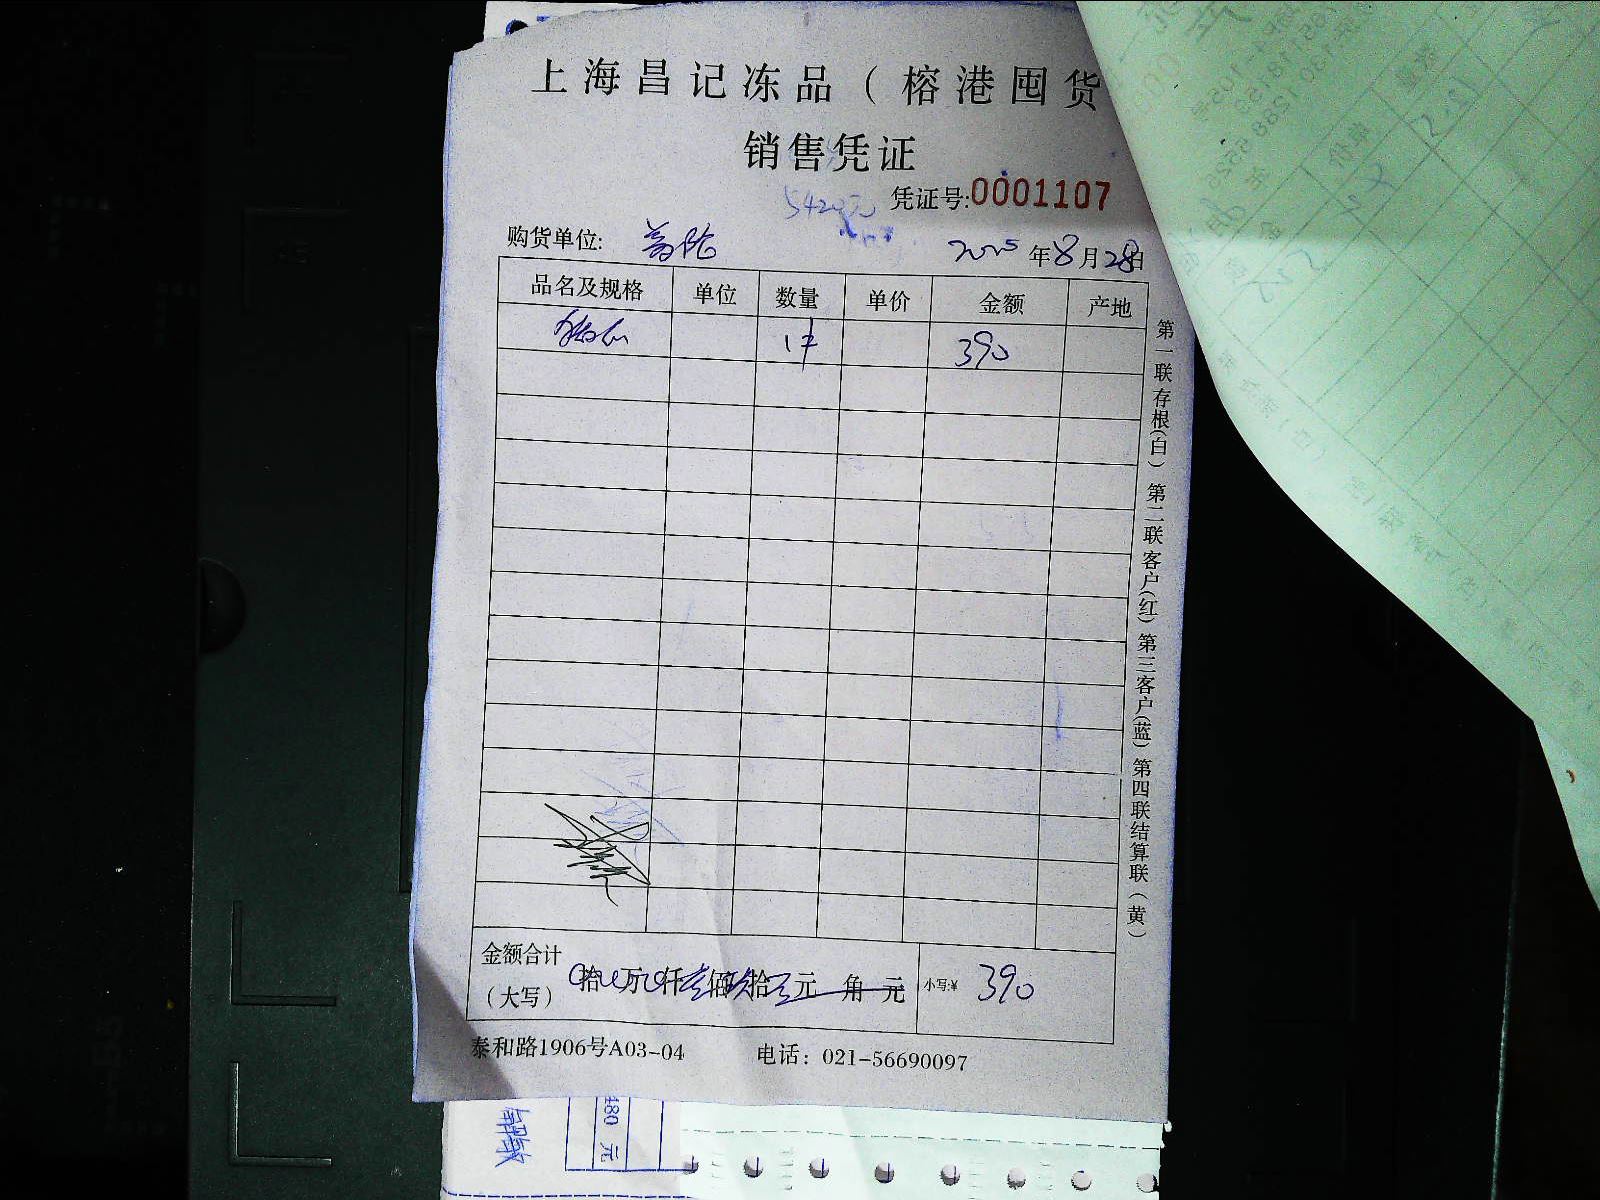 上海昌记冻品（榕港囤货
销售凭证
凭证号:0001107
5420元
购货单位:
2025年8月28日
品名及规格 单位 数量 单价 金额 产地
1件 390
金额合计
（大写） 拾 万 仟 佰 拾 元 角 元 小写:¥ 390
泰和路1906号A03-04 电话：021-56690097
第一联存根(白) 第二联客户(红) 第三客户(蓝) 第四联结算联（黄）
480元